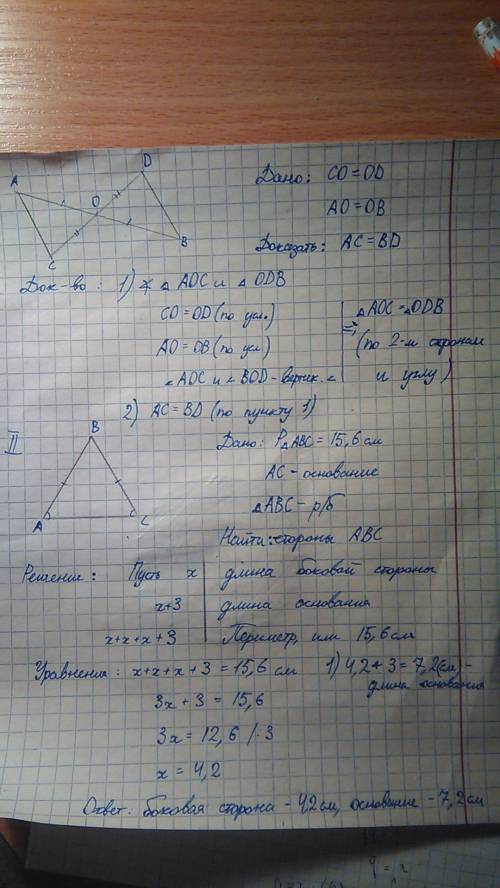 D
A
O
B
C
Дано: CO = OD
AO = OB
Доказать: AC = BD
Док-во: 1) ∡ △ AOC и △ ODB
CO = OD (по усл.)
AO = OB (по усл.)
∠AOC и ∠BOD - вертик. ∠
=> △AOC = △ODB
(по 2-м сторонам
и углу)
2) AC = BD (по пункту 1)
II
B
A
C
Дано: P△ABC = 15,6 см
AC - основание
△ABC - р/б
Найти: стороны ABC
Решение: Пусть x | длина боковой стороны
x+3 | длина основания
x+x+x+3 | Периметр, или 15,6 см
Уравнение: x+x+x+3 = 15,6 см
1) 4,2+3 = 7,2(см) -
длина основания
3x+3 = 15,6
3x = 12,6 /:3
x = 4,2
Ответ: боковая сторона - 42 см, основание - 7,2 см